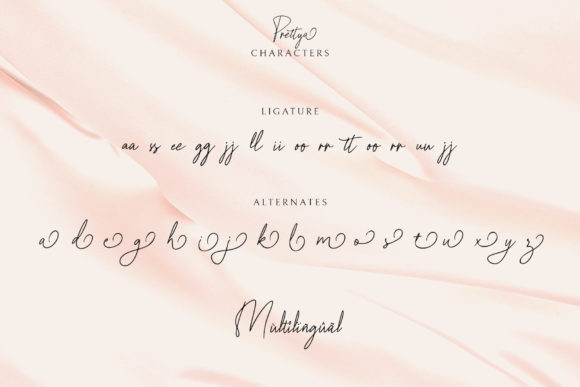 Prettya
CHARACTERS
LIGATURE
aa ss ee gg jj ll ii oo rr tt oo rr uu jj
ALTERNATES
a d e g h i j k l m o s t u x y z
Mùltîlingûãl